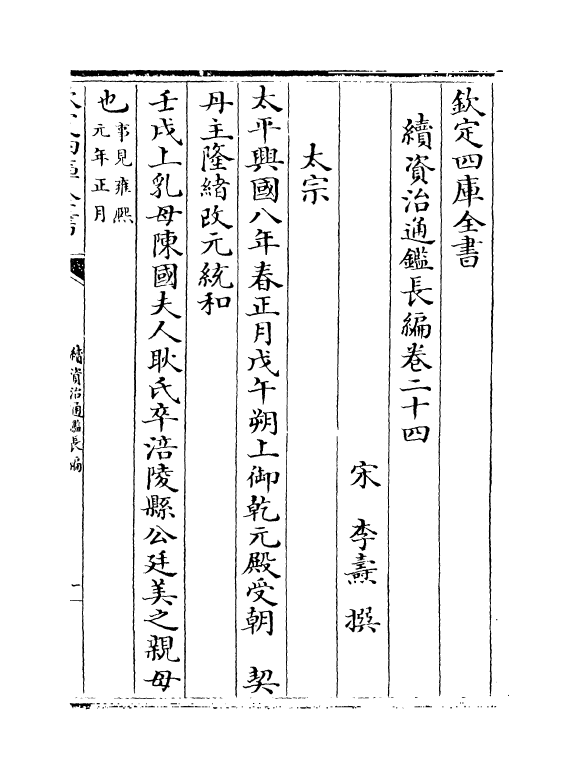 欽定四庫全書
續資治通鑑長編卷二十四
宋　李燾　撰
太宗
太平興國八年春正月戊午朔上御乾元殿受朝　契
丹主隆緒改元統和
壬戌上乳母陳國夫人耿氏卒涪陵縣公廷美之親母
也事見雍熙
元年正月
續資治通鑑長編
一